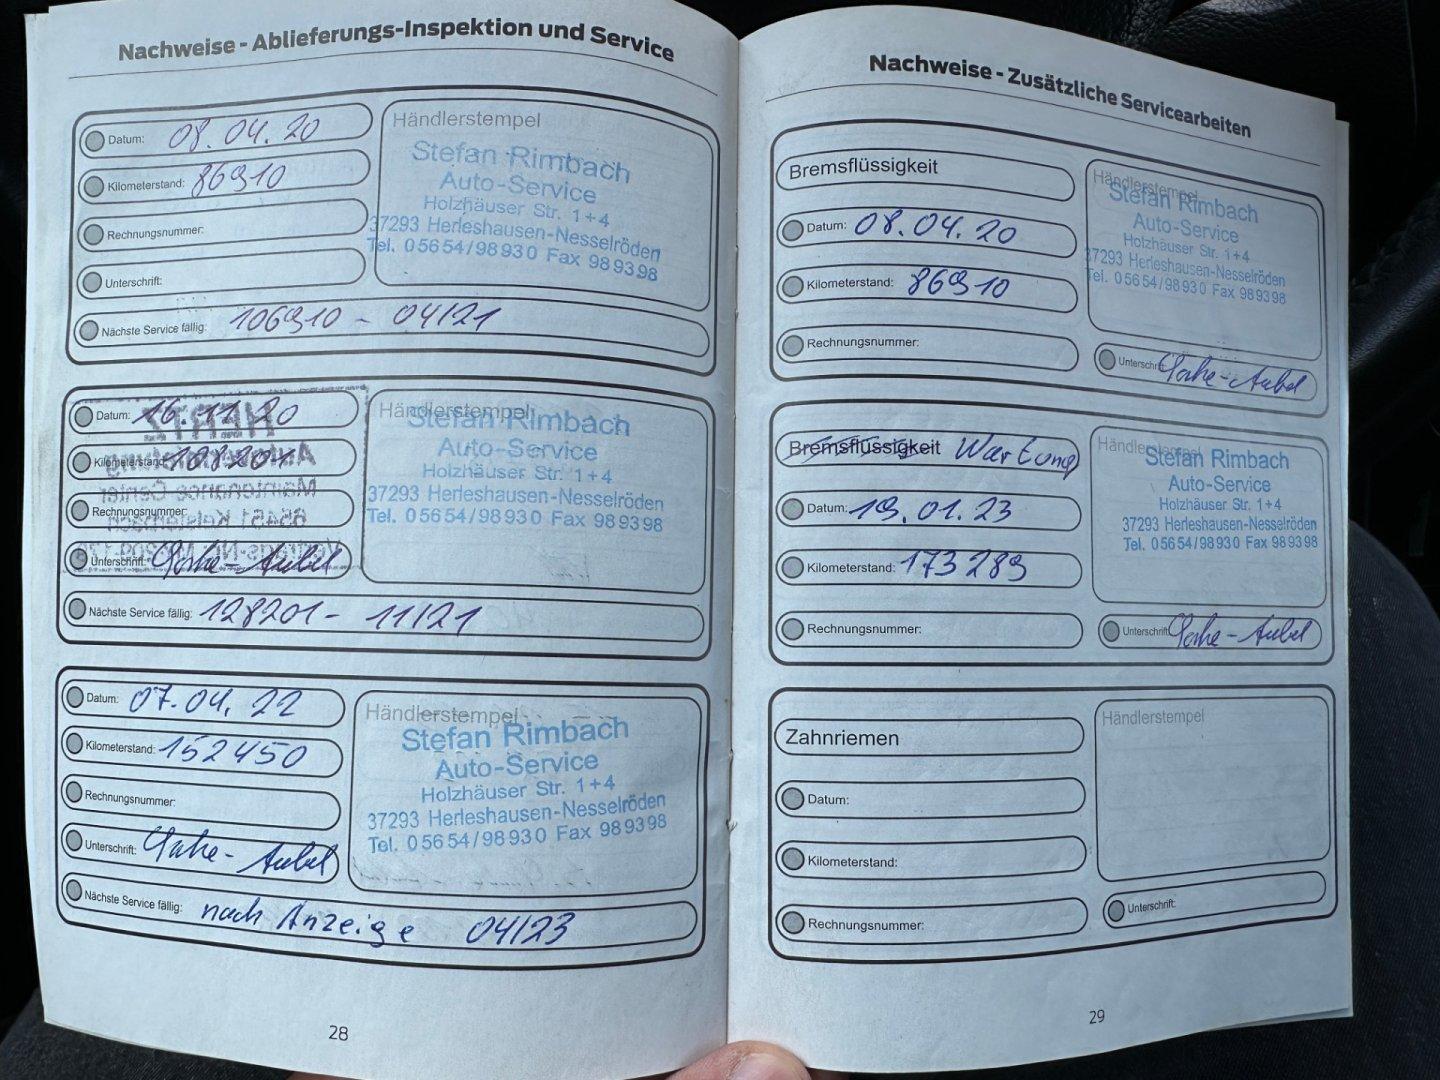 Nachweise - Ablieferungs-Inspektion und Service
Datum: 08.04.20
Kilometerstand: 86910
Rechnungsnummer:
Unterschrift:
Nächste Service fällig: 106910 - 04/21
Händlerstempel
Stefan Rimbach
Auto-Service
Holzhäuser Str. 1+4
37293 Herleshausen-Nesselröden
Tel. 05654/98930 Fax 989398
Datum: 16.11.20
Kilometerstand: 108201
Rechnungsnummer:
Unterschrift:
Nächste Service fällig: 128201 - 11/21
Händlerstempel
Stefan Rimbach
Auto-Service
Holzhäuser Str. 1+4
37293 Herleshausen-Nesselröden
Tel. 05654/98930 Fax 989398
HERTZ
Maintenance Center
65451 Kelsterbach
Datum: 07.04.22
Kilometerstand: 152450
Rechnungsnummer:
Unterschrift:
Nächste Service fällig: nach Anzeige 04/23
Händlerstempel
Stefan Rimbach
Auto-Service
Holzhäuser Str. 1+4
37293 Herleshausen-Nesselröden
Tel. 05654/98930 Fax 989398
28
Nachweise - Zusätzliche Servicearbeiten
Bremsflüssigkeit
Datum: 08.04.20
Kilometerstand: 86910
Rechnungsnummer:
Händlerstempel
Stefan Rimbach
Auto-Service
Holzhäuser Str. 1+4
37293 Herleshausen-Nesselröden
Tel. 05654/98930 Fax 989398
Unterschrift:
Bremsflüssigkeit Wartung
Datum: 19.01.23
Kilometerstand: 173289
Rechnungsnummer:
Händlerstempel
Stefan Rimbach
Auto-Service
Holzhäuser Str. 1+4
37293 Herleshausen-Nesselröden
Tel. 05654/98930 Fax 989398
Unterschrift:
Zahnriemen
Datum:
Kilometerstand:
Rechnungsnummer:
Händlerstempel
Unterschrift:
29